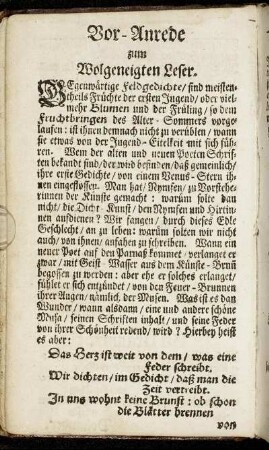 Vor-Anrede
zum
Wolgeneigten Leser.
GEgenwärtige Feldgedichte / sind meisten-
theils Früchte der ersten Jugend / oder viel-
mehr Blumen und der Früling / so dem
Fruchtbringen des Alter-Sommers vorge-
laufen: ist ihnen demnach nicht zu verüblen / wann
sie etwas von der Jugend-Eitelkeit mit sich füh-
ren. Wem der alten und neuen Poeten Schrif-
ten bekandt sind / der wird befinden / daß gemeinlich /
ihre erste Gedichte / von einem Venus-Stern ih-
nen eingeflossen. Man hat / Nymfen / zu Vorstehe-
rinnen der Künste gemacht: warüm solte dan
nicht / die Dicht-Kunst / den Nymfen und Hirtin-
nen aufdienen? Wir fangen / durch dieses Edle
Geschlecht / an zu leben: warüm solten wir nicht
auch / von ihnen / anfahen zu schreiben. Wann ein
neuer Poet auf den Parnaß kommet / verlanget er
zwar / mit Geist-Wasser aus dem Künste-Brunn
begossen zu werden: aber ehe er solches erlanget /
fühlet er sich entzündet / von den Feuer-Brunnen
ihrer Augen / nämlich / der Musen. Was ist es dan
Wunder / wann alsdann / eine und andere schöne
Musa / seinen Schriften inhalt / und seine Feder
von ihrer Schönheit redend / wird? Hierbey heist
es aber:
Das Herz ist weit von dem / was eine
Feder schreibt.
Wir dichten / im Gedicht / daß man die
Zeit vertreibt.
In uns wohnt keine Brunst: ob schon
die Blätter brennen
von